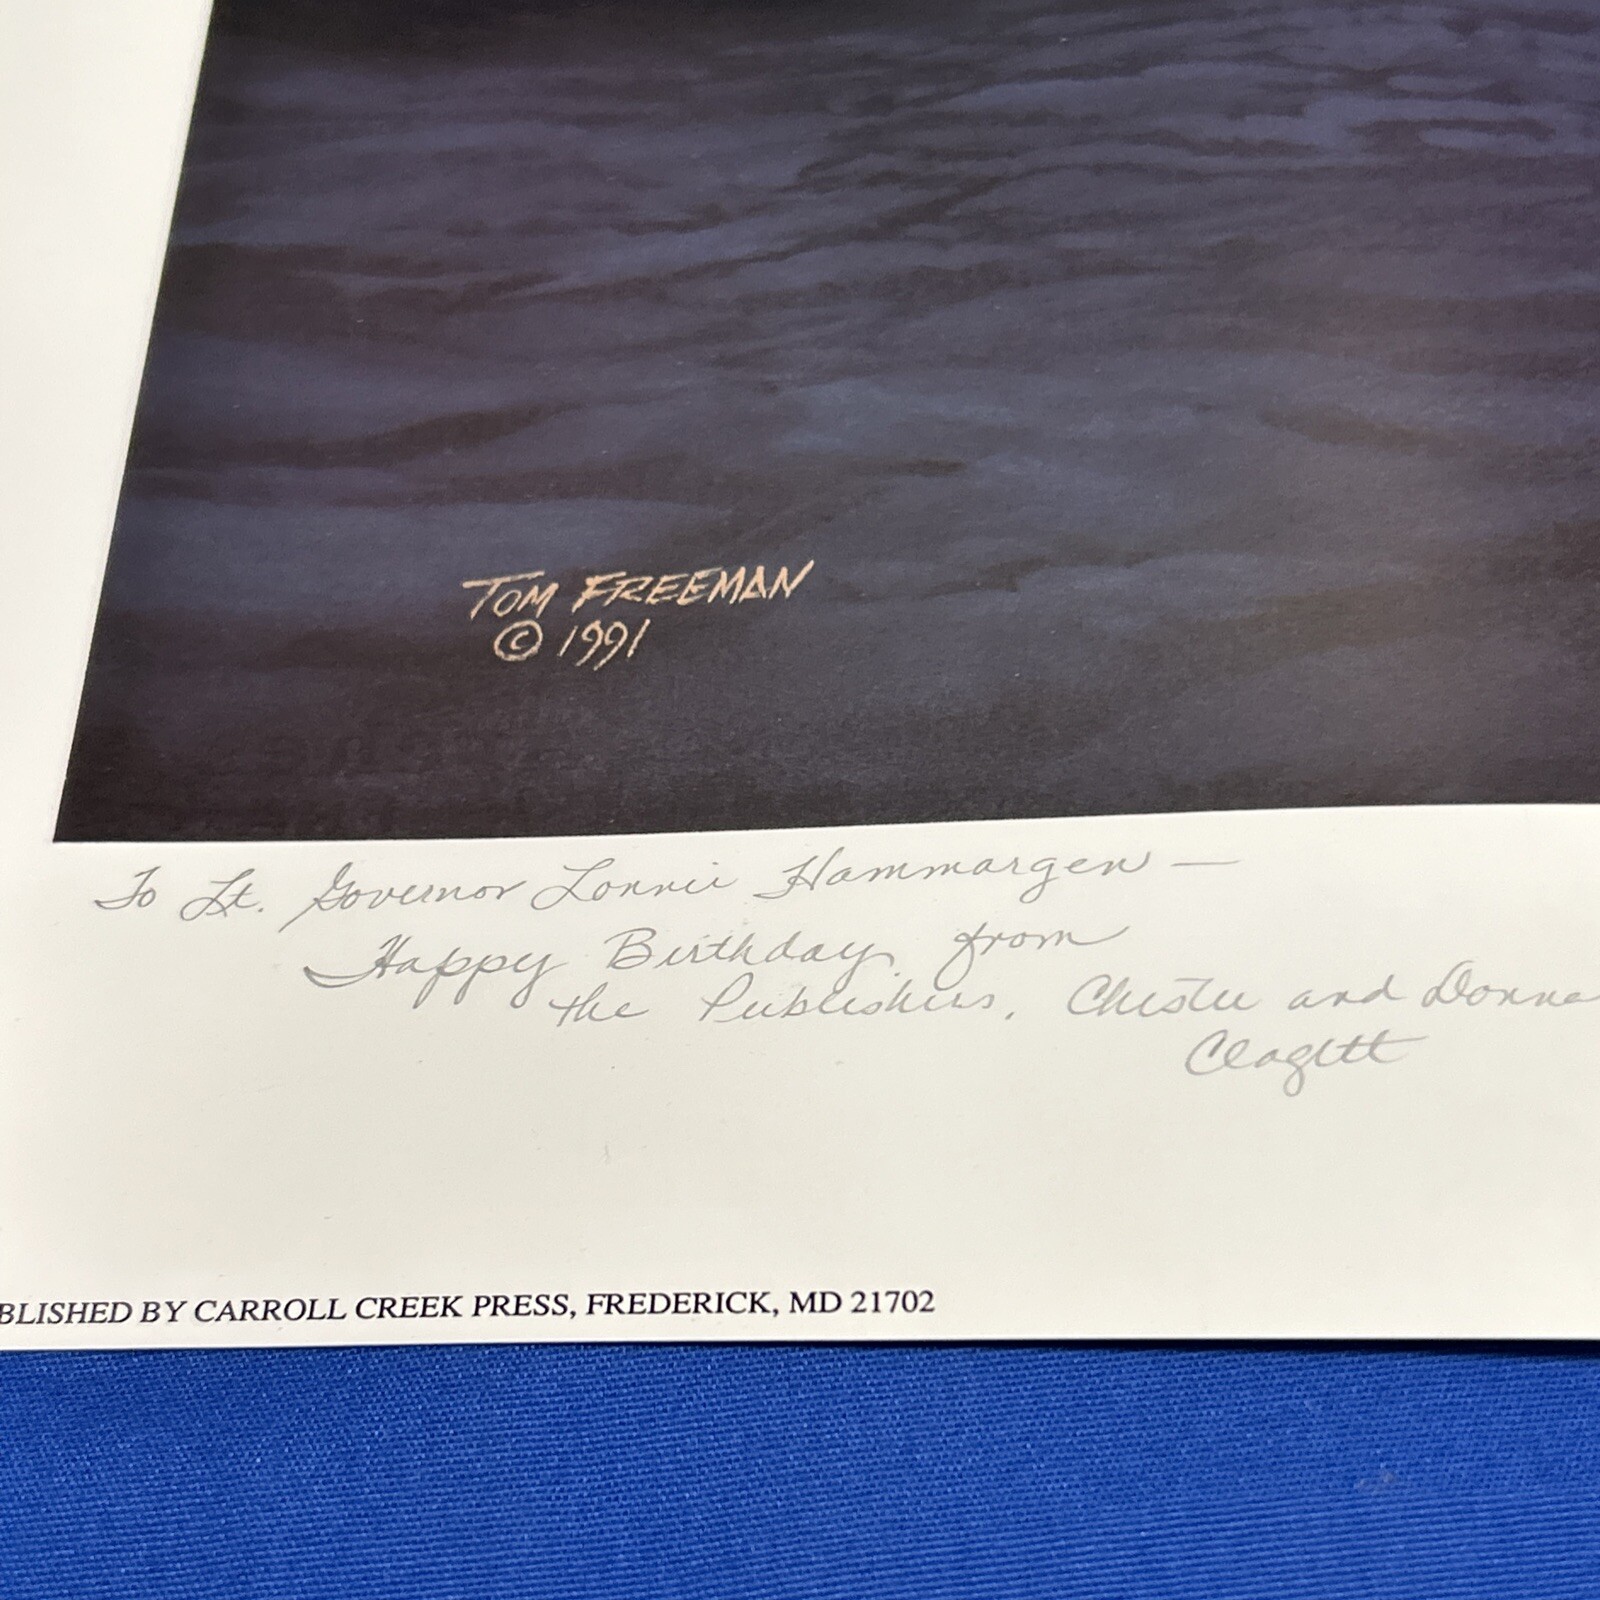 TOM FREEMAN
© 1991
To Lt. Governor Lonnie Hammargen —
Happy Birthday from
the Publishers, Chester and Donna
Clagett
BLISHED BY CARROLL CREEK PRESS, FREDERICK, MD 21702